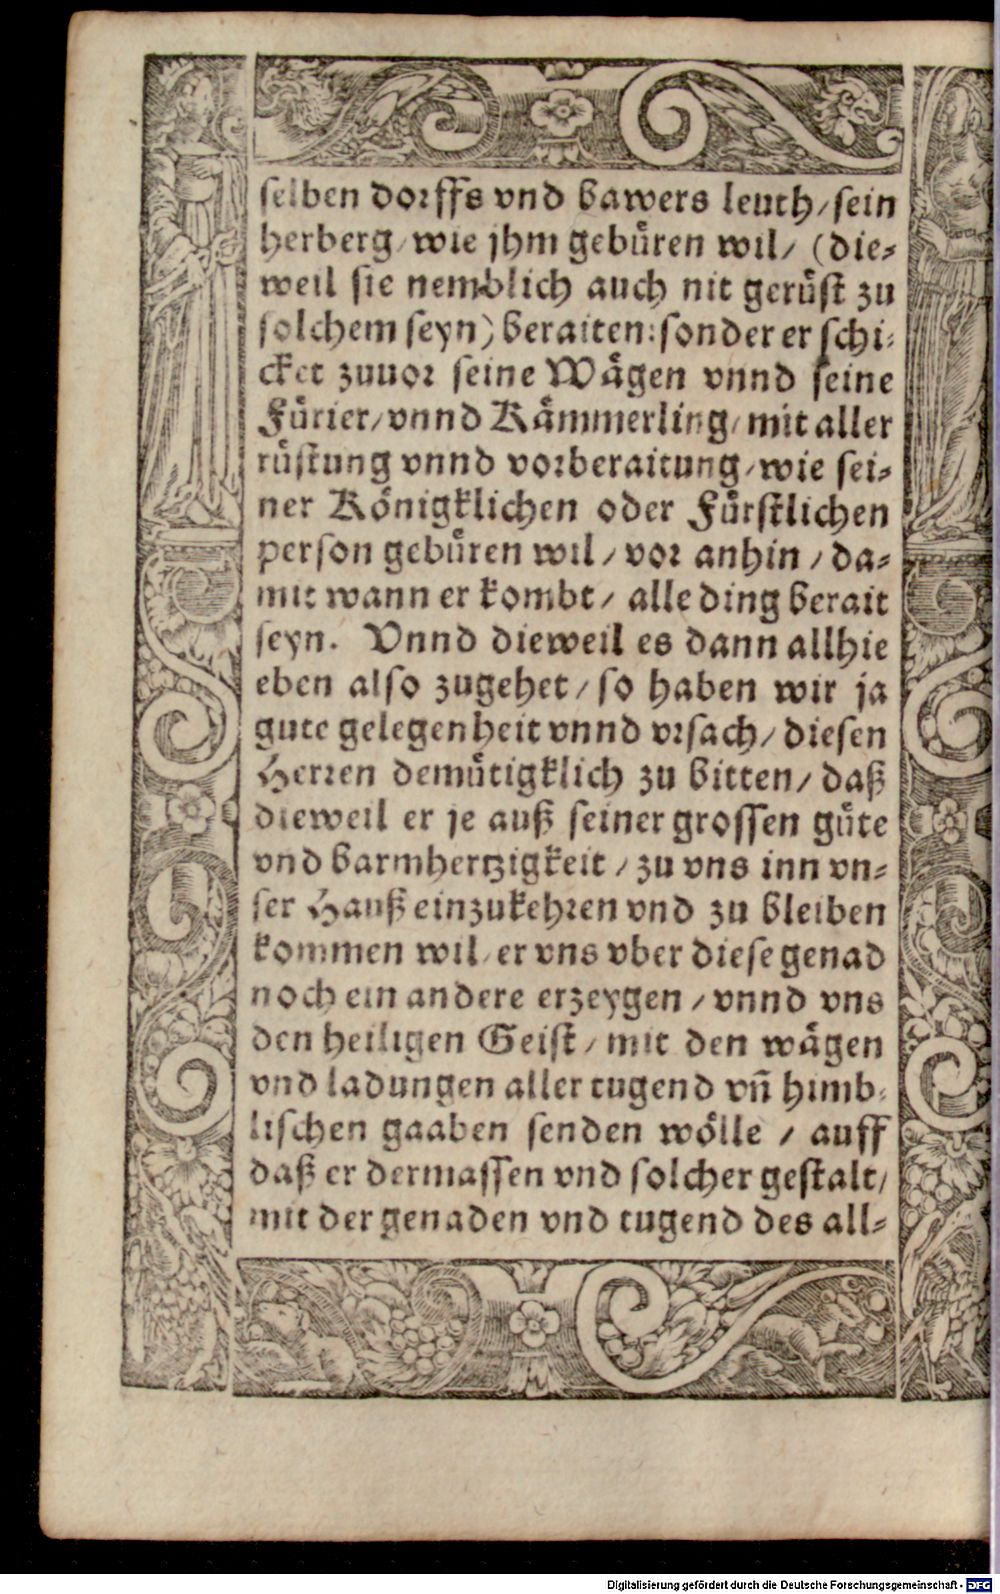 selben dorffs vnd bawers leuth / sein
herberg / wie jhm gebüren wil / (die-
weil sie nemblich auch nit gerüst zu
solchem seyn) beraiten: sonder er schi-
cket zuuor seine Wägen vnnd seine
Fürier / vnnd Kämmerling / mit aller
rüstung vnnd vorberaitung / wie sei-
ner Königklichen oder Fürstlichen
person gebüren wil / vor anhin / da-
mit wann er kombt / alle ding berait
seyn. Vnnd dieweil es dann allhie
eben also zugehet / so haben wir ja
gute gelegenheit vnnd vrsach / diesen
Herren demütigklich zu bitten / daß
dieweil er je auß seiner grossen güte
vnd barmhertzigkeit / zu vns inn vn-
ser Hauß einzukehren vnd zu bleiben
kommen wil / er vns vber diese genad
noch ein andere erzeygen / vnnd vns
den heiligen Geist / mit den wägen
vnd ladungen aller tugend vn̄ himb-
lischen gaaben senden wölle / auff
daß er dermassen vnd solcher gestalt /
mit der genaden vnd tugend des all-
Digitalisierung gefördert durch die Deutsche Forschungsgemeinschaft - DFG